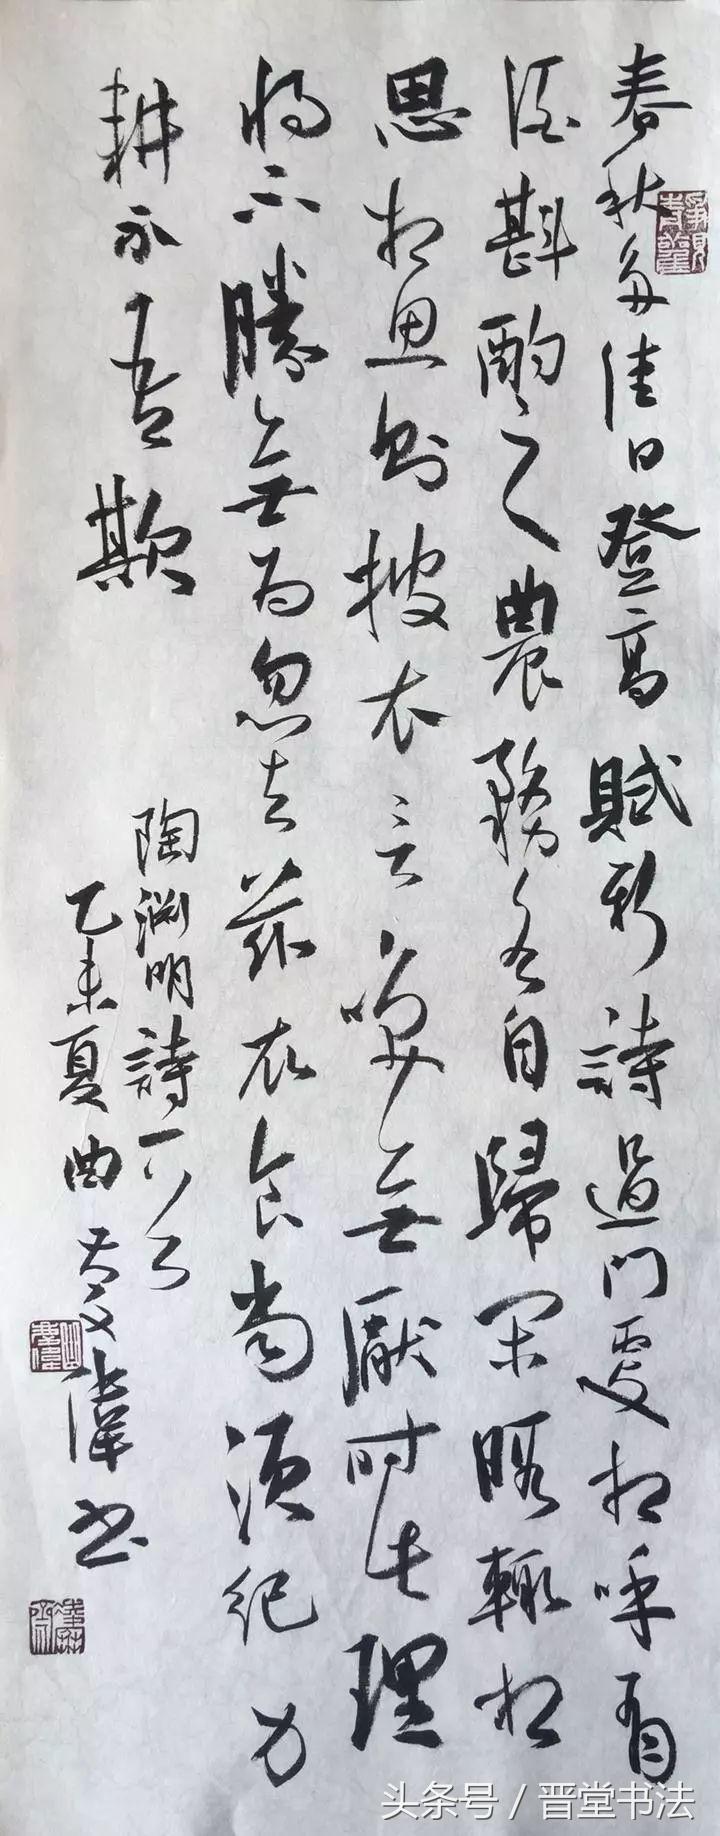 春秋多佳日登高賦新詩過門更相呼有
酒斟酌之農務各自歸閑暇輒相
思相思則披衣言咲無厭時此理
將不勝無為忽去茲衣食當須紀力
耕不吾欺
陶淵明詩一首
乙未夏曲偉書
头条号／晋堂书法